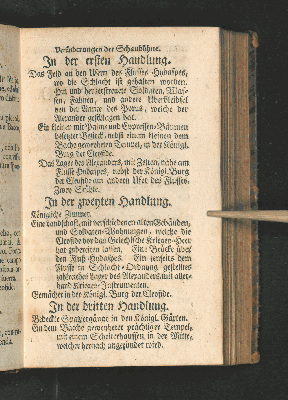 Veränderungen der Schaubühne.
In der ersten Handlung.
Das Feld an den Ufern des Flusses Hydaspes,
wo die Schlacht ist gehalten worden.
Hin und her zerstreuete Soldaten, Waf-
fen, Fahnen, und andere Uberbleibsel
von der Armee des Porus, welche der
Alexander geschlagen hat.
Ein kleiner mit Palme und Cypressen-Bäumen
besetzter Bezirck, nebst einem kleinen dem
Bacho geweyheten Tempel, in der Königl.
Burg der Cleofide.
Das Lager des Alexanders, mit Zelten, nahe am
Flusse Hydaspes, nebst der Königl. Burg
der Cleofide am andern Ufer des Flusses.
Zwey Stühle.
In der zweyten Handlung.
Königliche Zimmer.
Eine Landschafft, mit verschiedenen alten Gebäuden,
und Soldaten-Wohnungen, welche die
Cleofide vor das Griechische Krieges-Heer
hat zubereiten lassen. Eine Brücke über
den Fluß Hydaspes. Ein jenseits dem
Flusse in Schlacht-Ordnung gestelltes
zahlreiches Lager des Alexanders mit aller-
hand Krieges-Instrumenten.
Gemächer in der Königl. Burg der Cleofide.
In der dritten Handlung.
Bedeckte Spatziergänge in den Königl. Gärten.
Ein dem Bacho geweyheter prächtiger Tempel,
mit einem Scheiterhauffen in der Mitte,
welcher hernach angezündet wird.